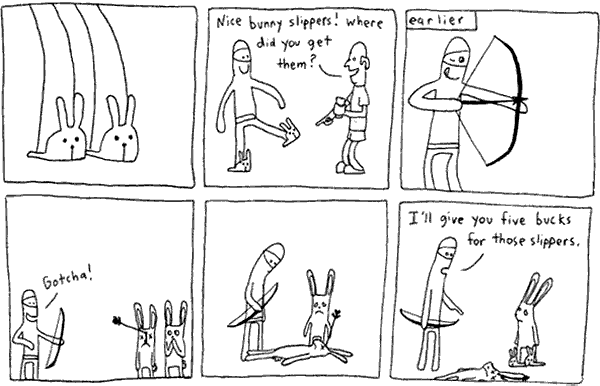 Nice bunny slippers! Where
did you get
them?
earlier
Gotcha!
I'll give you five bucks
for those slippers.